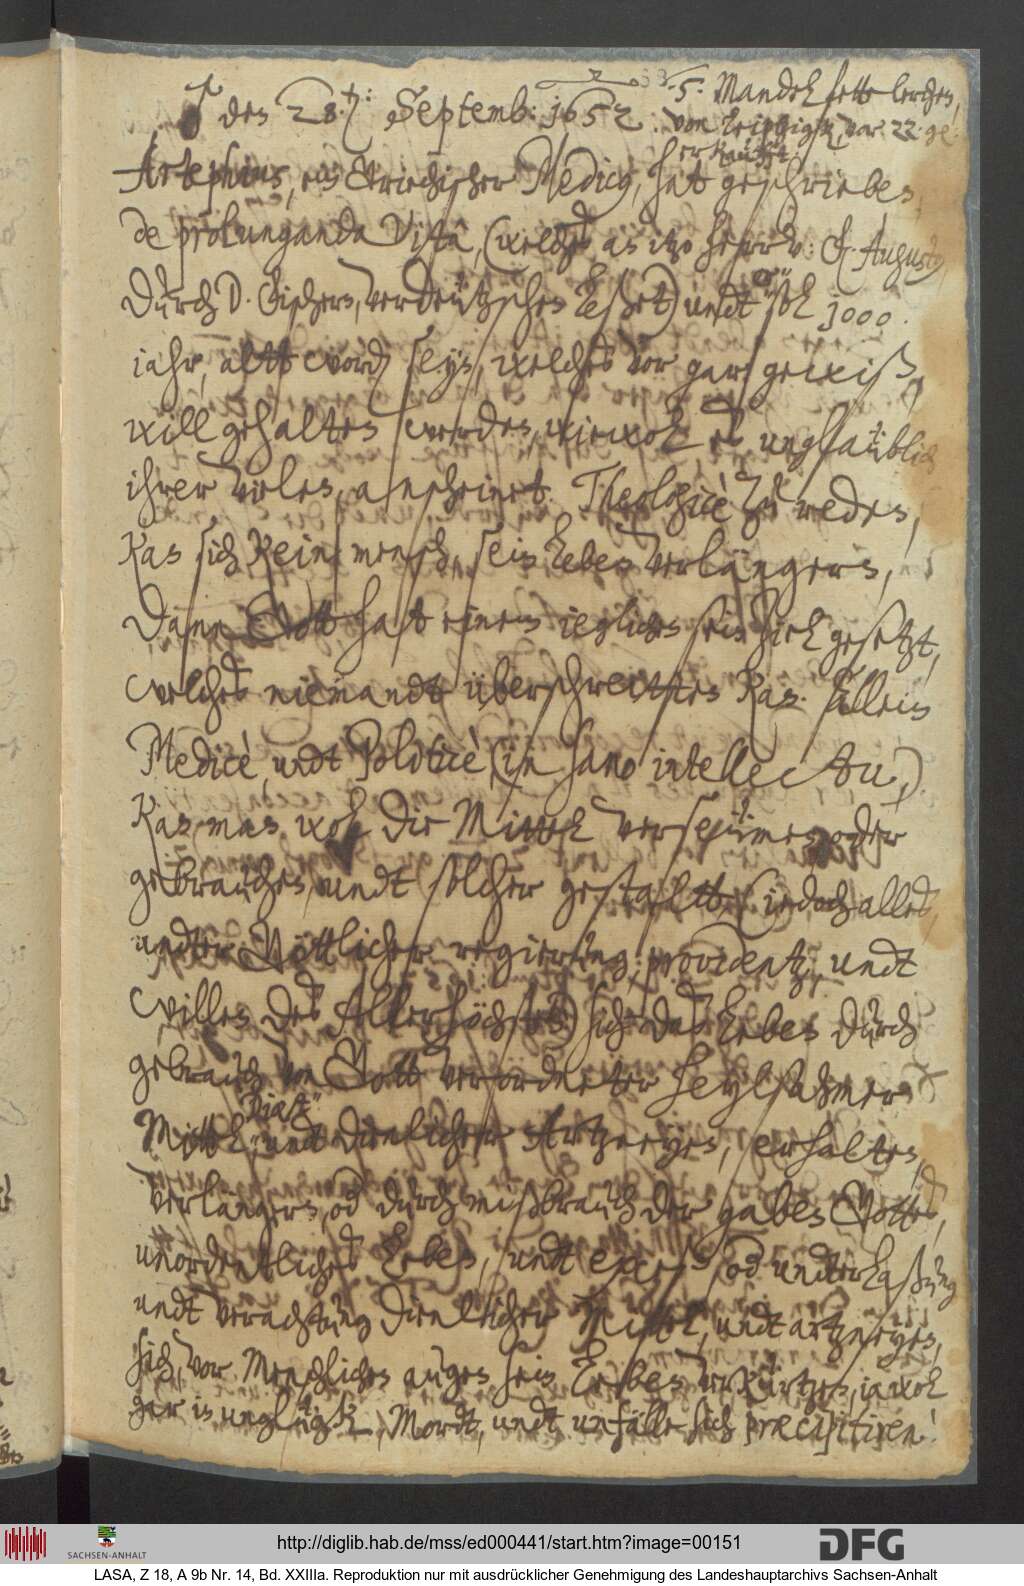 5. Mandel fette lerchen,
♂ den 28.ten: Septemb: 1652.
von Leiptzigk, vor 22 ge
erkauft
Artephius, ein Griechischer Medicus, hat geschrieben,
de prolunganda Vita, (welches an itzo herrv: F. Augustus
durch D. Fischern, verdeützschen leßet) undt er söll 1000.
iahr, altt worden seyn, welches vor gar gewiß,
will gehalten werden, wiewol es unglaüblich
ihrer vielen, anscheinet. Theologicè zu reden,
kan sich kein mensch, sein Leben verlängern,
Dann Gott hatt einem ieglichen sein ziel gesetzt,
welches niemandt überschreitten kan. Allein
Medicè, undt Politicè, (in sano intellectu,)
kan man wol die Mittel verseümen, oder
gebrauchen, undt solcher gestaltt, (iedoch alles,
undter Göttlicher regierung, providentz, undt
willen des Allerhöchsten) sich das Leben durch
gebrauch von Gott verordneter heylsahmer
Diæt
Mittel, undt dienlicher Artzneyen, erhalten,
verlängern, od durch mißbrauch der gaben Gottes,
unordentliches Leben, undt exceß od undterlaßung
undt verachtung dienlicher Mittel, undt artzneyen,
sich, vor Menschlichen augen sein Leben verkürtzen, ia wol
gar in unglügk, Mordt, undt unfälle sich præcipitiren!
http://diglib.hab.de/mss/ed000441/start.htm?image=00151
SACHSEN-ANHALT
DFG
LASA, Z 18, A 9b Nr. 14, Bd. XXIIIa. Reproduktion nur mit ausdrücklicher Genehmigung des Landeshauptarchivs Sachsen-Anhalt